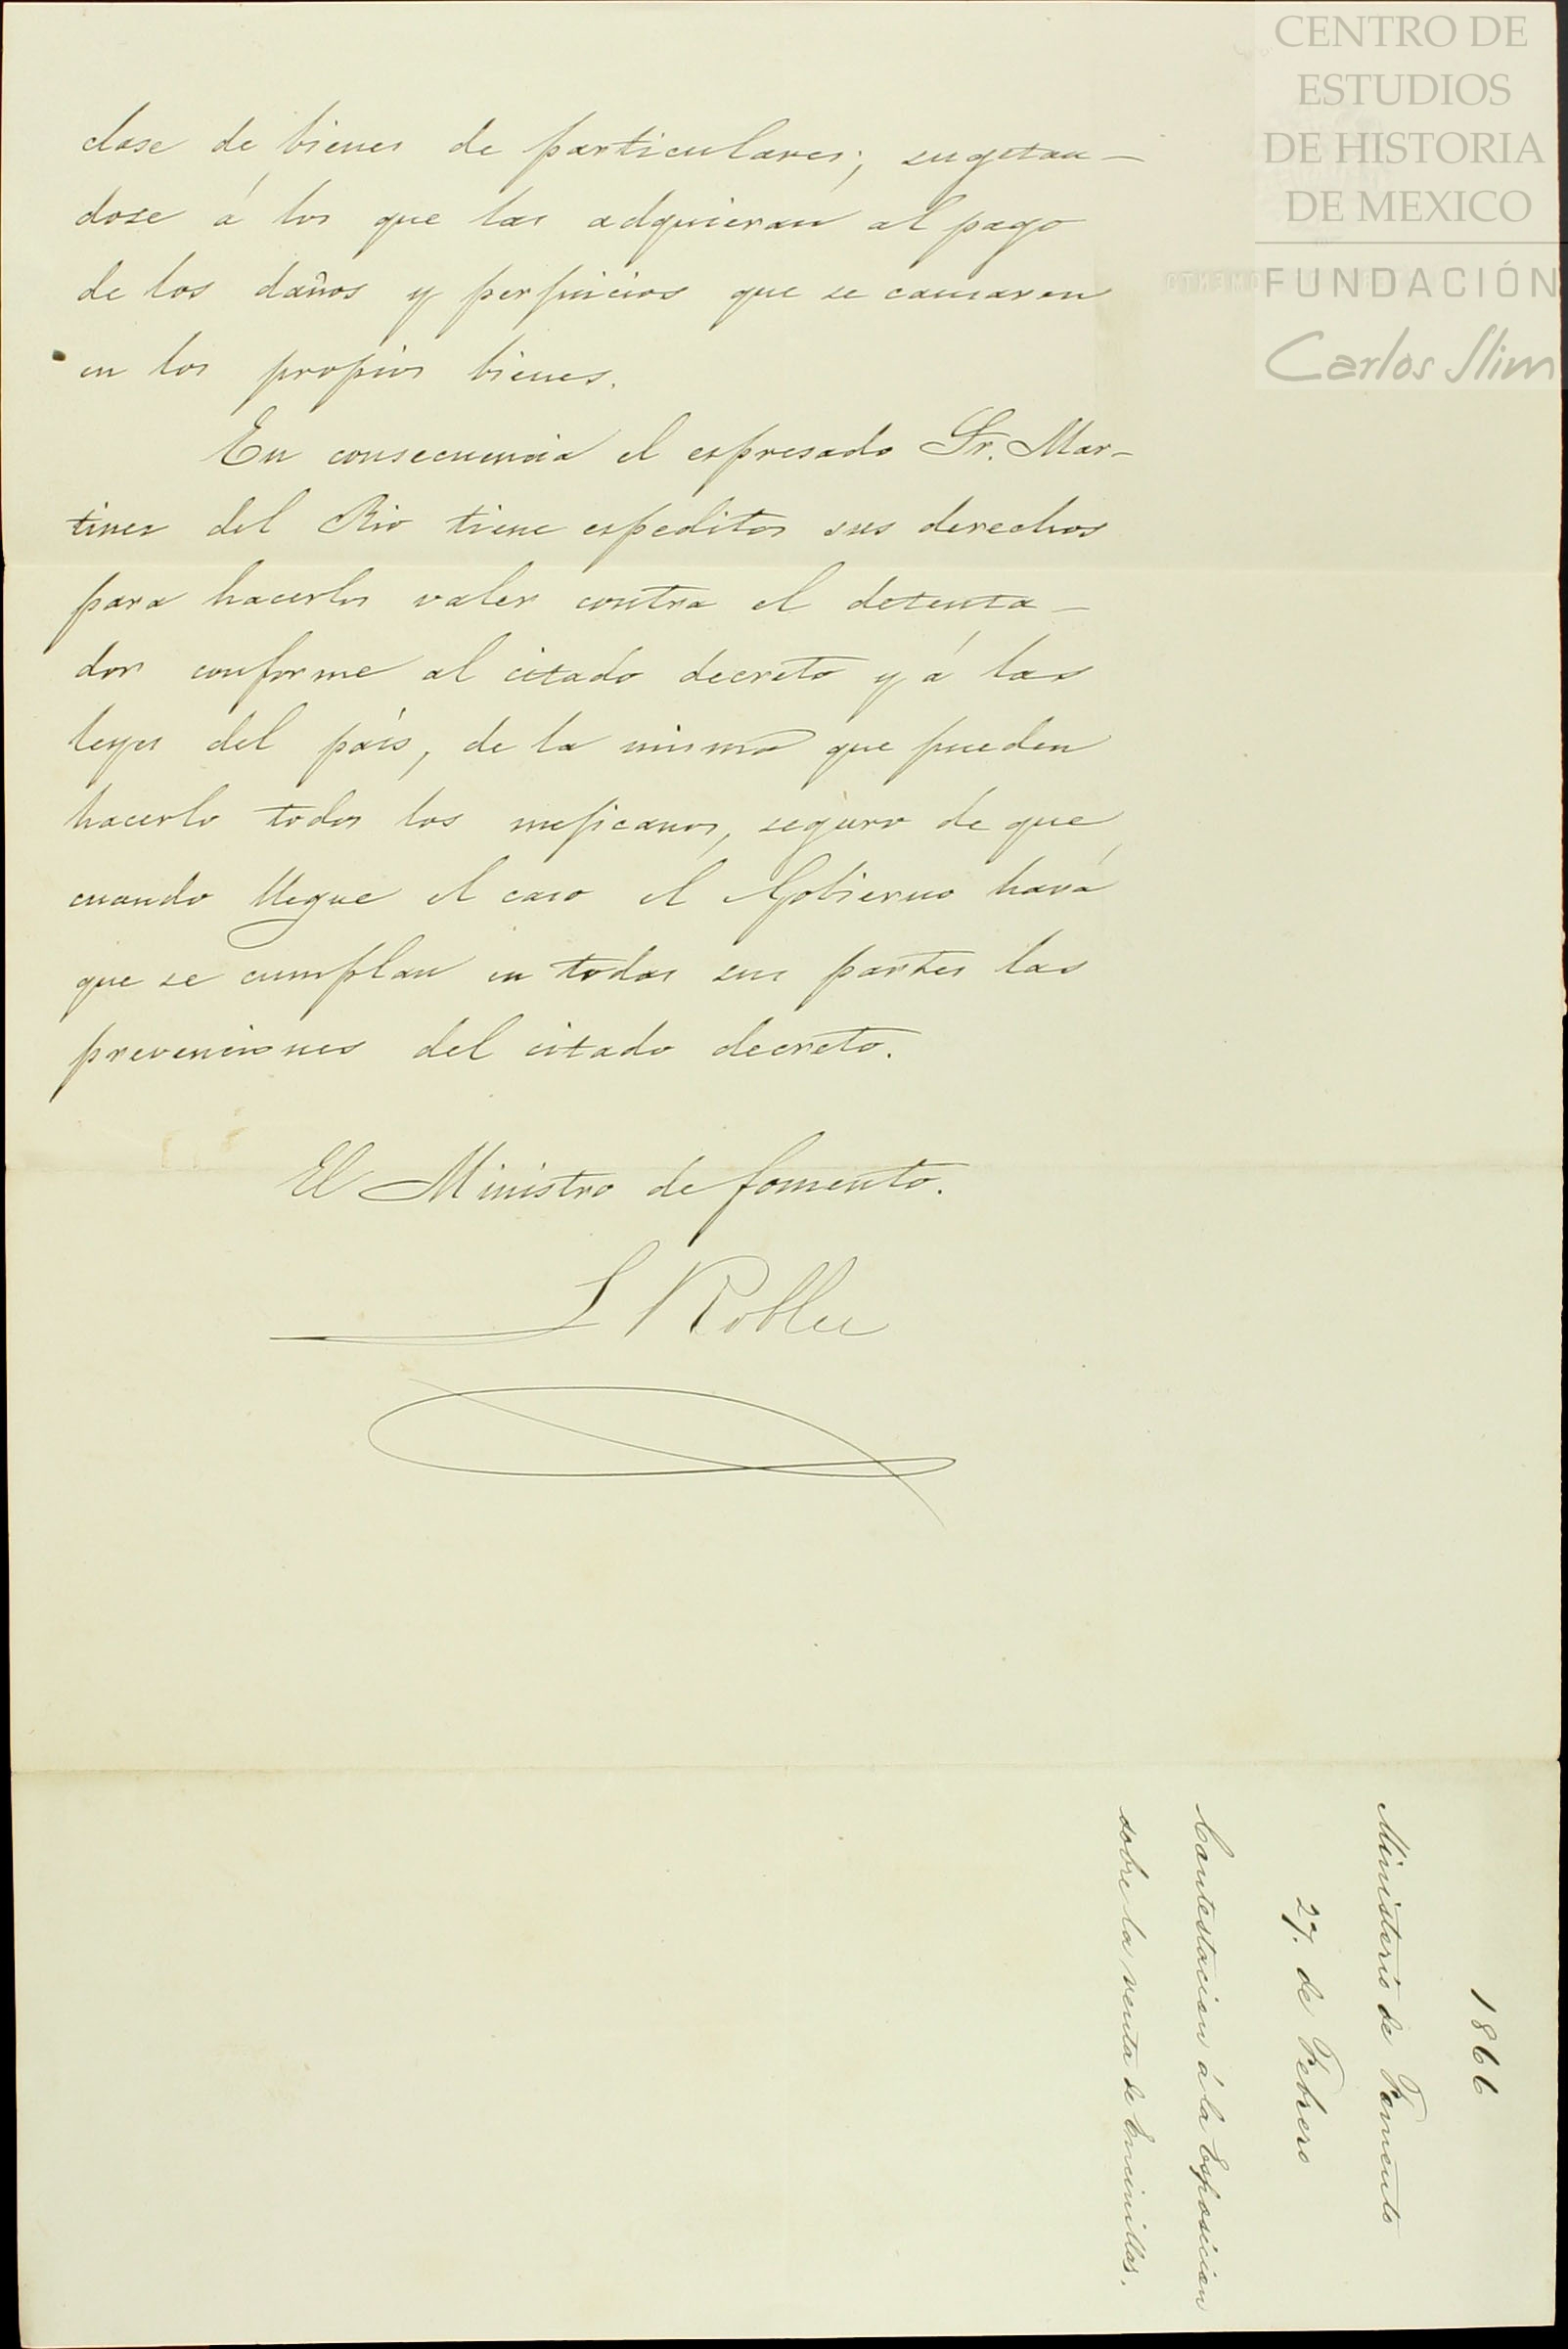 clase de bienes de particulares; sugetan-
dose á los que las adquieran al pago
de los daños y perjuicios que se causaren
en los propios bienes.
En consecuencia el espresado Sr. Mar-
tinez del Rio tiene espeditos sus derechos
para hacerlos valer contra el detenta-
dor conforme al citado decreto y á las
leyes del país, de la misma que pueden
hacerlo todos los mejicanos, seguro de que
cuando llegue el caso el Gobierno hará
que se cumplan en todas sus partes las
prevenciones del citado decreto.
El Ministro de fomento.
L Robles
1866
Ministerio de Fomento
27. de Febrero
Contestacion á la Esposicion
sobre la venta de Encinillas.
CENTRO DE
ESTUDIOS
DE HISTORIA
DE MEXICO
FUNDACIÓN
Carlos Slim